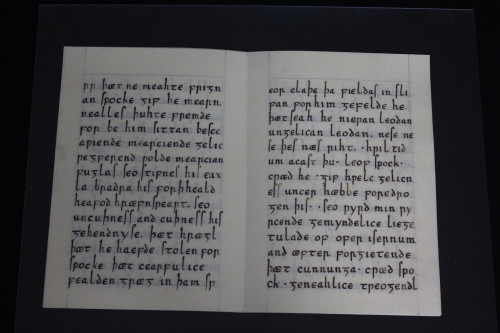 rr þæt ne meahte frign
an spocke gif he mearn.
nealles þuhte fremde
for be him sittan besce
aƿiende mearciende gelic
ƿegferend ƿolde mearcian
fuglas seo stifnes his eax
la bradra his forþheald
heafod hræfnsƿeart. seo
uncuþness and cuþness his
gehendnyse. þæt hrægl
þæt he haefde stolen for
spocke þæt cearfulice
fealden græg in þam sƿ
eor claþe þa fieldas in sli
fan for him gefelde he
þæt seah he nieƿan leodan
ungelican leodan. nese ne
se þes næs riht. ·hƿil tid
um acast þu· leof spock·
cƿæd he · gif hƿelc gelicn
ess uncer hæbbe foredro
gen þis· ·seo ƿyrd min ƿy
rcende gemyndelice liege
tulade of ofer isernum
and æfter forgietende
þæt cunnunga· cƿæd spo
ck · geneahlice treoƿgendl